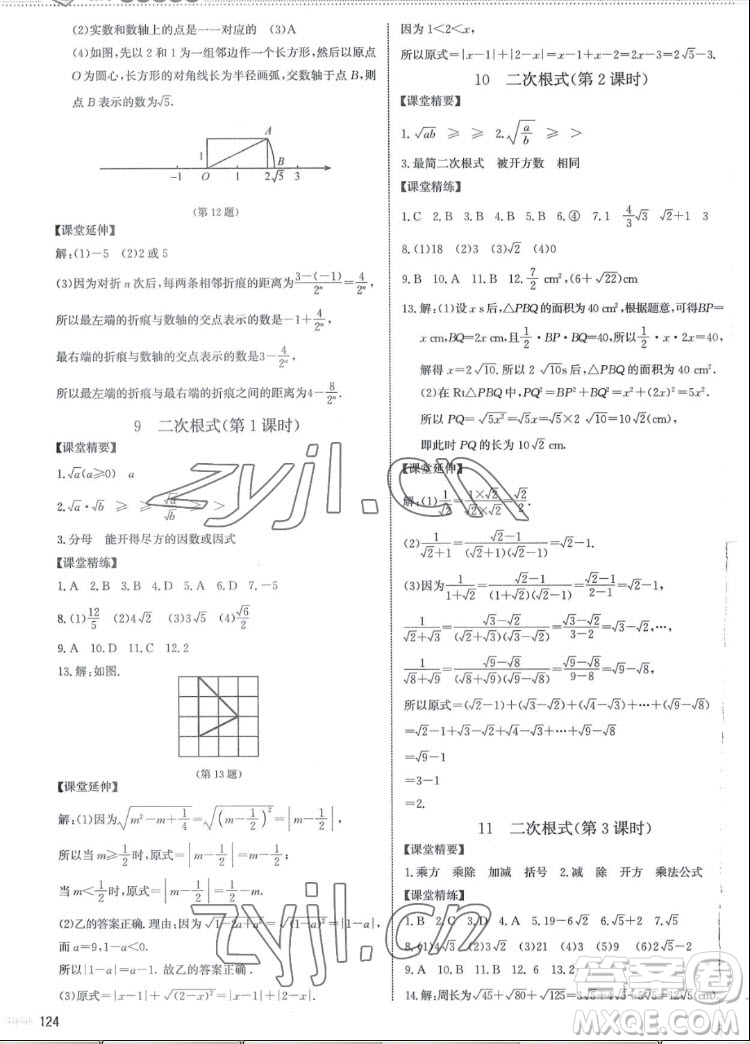 (2)实数和数轴上的点 一一对应的 (3)A
(4)如图，先以 2 和 1 为一组邻边作一个长方形，然后以原点
O 为圆心，长方形的对角线长为半径画弧，交数轴于点 B，则
点 B 表示的数为√5.
A
1
B
-1 O 1 2√5 3
(第12题)
【课堂延伸】
解：(1)-5 (2)2或5
(3)因为对折 n 次后，每两条相邻折痕的距离为(3-(-1))/2ⁿ=4/2ⁿ，
所以最左端的折痕与数轴的交点表示的数是-1+4/2ⁿ，
最右端的折痕与数轴的交点表示的数是3-4/2ⁿ，
所以最左端的折痕与最右端的折痕之间的距离为4-8/2ⁿ.
9 二次根式(第1课时)
【课堂精要】
1.√a(a≥0) a
2.√a·√b ≥ ≥ √a/√b ≥ >
3.分母 能开得尽方的因数或因式
【课堂精练】
1.A 2.B 3.B 4.D 5.A 6.D 7.-5
8.(1)12/5 (2)4√2 (3)3√5 (4)√6/2
9.A 10.D 11.C 12.2
13.解：如图.
(第13题)
【课堂延伸】
解：(1)因为√(m²-m+1/4)=√((m-1/2)²)=|m-1/2|，
所以当 m≥1/2时，原式=|m-1/2|=m-1/2；
当 m<1/2时，原式=|m-1/2|=-m+1/2.
(2)乙的答案正确.理由：因为√(1-2a+a²)=√((1-a)²)=|1-a|，
而 a=9，1-a<0.
所以|1-a|=a-1.故乙的答案正确.
(3)原式=|x-1|+√((2-x)²)=|x-1|+|2-x|.
124
因为 1<2<x，
所以原式=|x-1|+|2-x|=x-1+x-2=2x-3=2√5-3.
10 二次根式(第2课时)
【课堂精要】
1.√ab ≥ ≥ 2.√(a/b) ≥ >
3.最简二次根式 被开方数 相同
【课堂精练】
1.C 2.B 3.B 4.C 5.B 6.④ 7.1 4/3√3 √2+1 3
8.(1)18 (2)3 (3)√2 (4)0
9.B 10.A 11.D 12.7/2 cm²，(6+√22)cm
13.解：(1)设 x s后，△PBQ 的面积为 40 cm²，根据题意，可得BP=
x cm，BQ=2x cm，且1/2·BP·BQ=40，所以1/2·x·2x=40，
解得 x=2√10.所以 2√10 s后，△PBQ 的面积为 40 cm².
(2)在 Rt△PBQ 中，PQ²=BP²+BQ²=x²+(2x)²=5x².
所以 PQ=√5x²=√5x=√5×2√10=10√2(cm)，
即此时 PQ 的长为 10√2 cm.
【课堂延伸】
解：(1)1/√2=(1×√2)/(√2×√2)=√2/2.
(2)1/(√2+1)=(√2-1)/((√2+1)(√2-1))=√2-1.
(3)因为1/(1+√2)=(√2-1)/((1+√2)(√2-1))=(√2-1)/(2-1)=√2-1，
1/(√2+√3)=(√3-√2)/((√2+√3)(√3-√2))=(√3-√2)/(3-2)=√3-√2，…，
1/(√8+√9)=(√9-√8)/((√8+√9)(√9-√8))=(√9-√8)/(9-8)=√9-√8，
所以原式=(√2-1)+(√3-√2)+(√4-√3)+…+(√9-√8)
=√2-1+√3-√2+√4-√3+…+√9-√8
=√9-1
=3-1
=2.
11 二次根式(第3课时)
【课堂精要】
1.乘方 乘除 加减 括号 2.减 除 开方 乘法公式
【课堂精练】
1.B 2.C 3.D 4.A 5.19-6√2 6.√5+2 7.√5
8.(1)4√3 (2)3√2
9.A 10.C 11.A 12.2 13.
14.解：周长为√45+√80+√125=3√5+4√5+5√5=12√5(cm).
zyjl.cn
zyjl.cn
答案卷
MXQE.COM